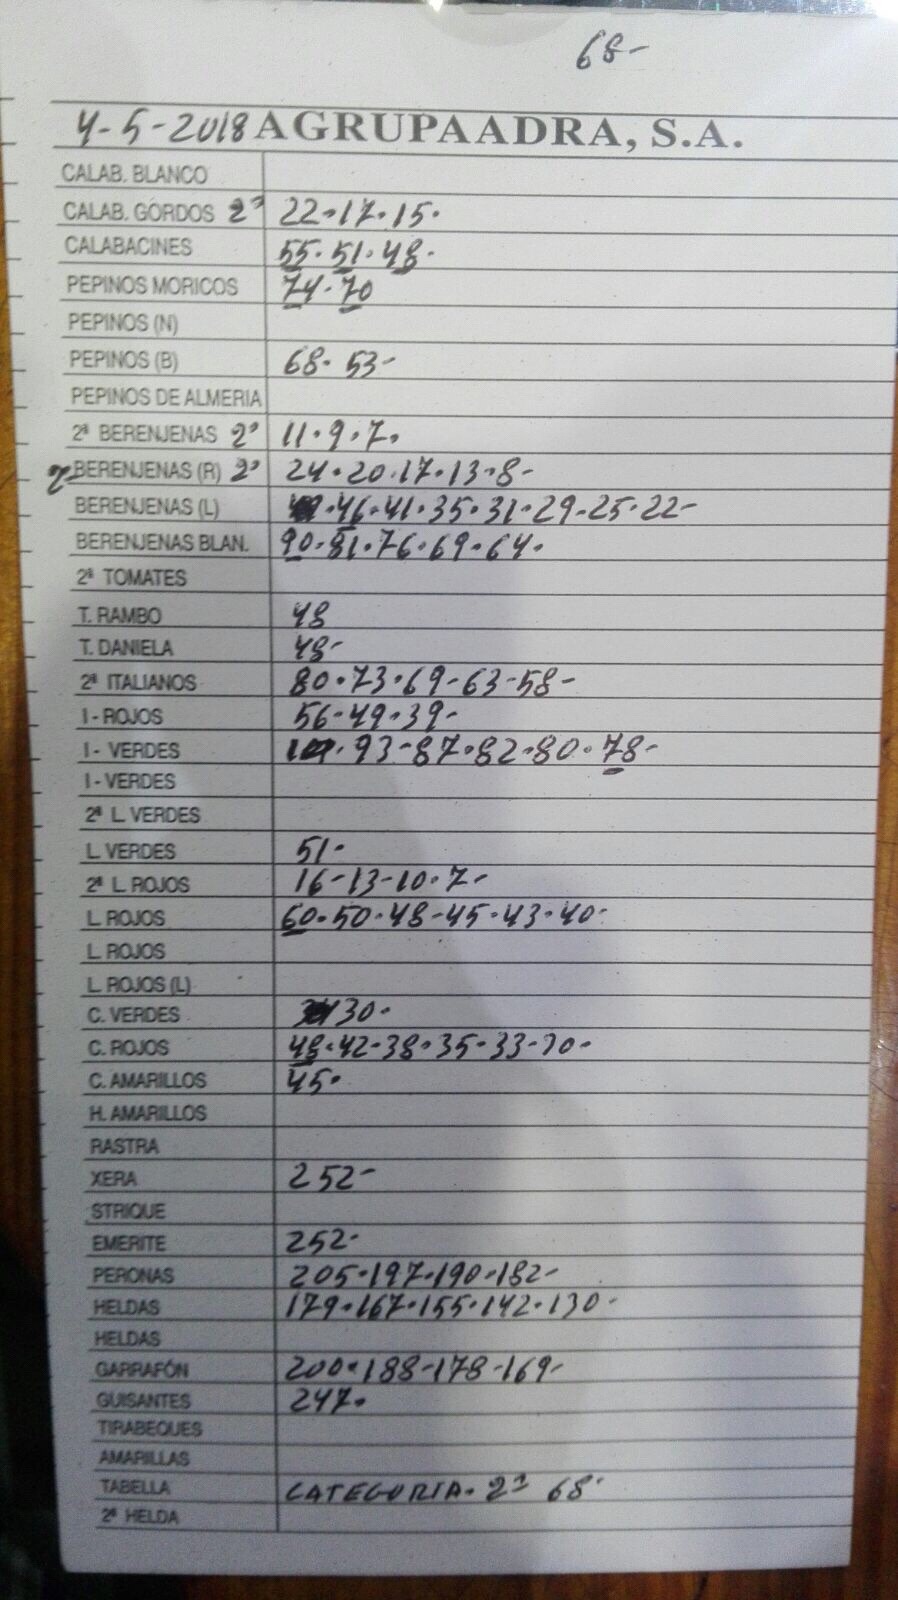 68-
4-5-2018 AGRUPAADRA, S.A.
CALAB. BLANCO
CALAB. GORDOS 2ª 22-17-15.
CALABACINES 55-51-48-
PEPINOS MORICOS 74-70
PEPINOS (N)
PEPINOS (B) 68-53-
PEPINOS DE ALMERIA
2ª BERENJENAS 2ª 11-9-7.
BERENJENAS (R) 2ª 24-20-17-13-8-
BERENJENAS (L) 46-41-35-31-29-25-22-
BERENJENAS BLAN. 90-81-76-69-64.
2ª TOMATES
T. RAMBO 48
T. DANIELA 48-
2ª ITALIANOS 80-73-69-63-58-
I - ROJOS 56-49-39-
I - VERDES 93-87-82-80-78-
I - VERDES
2ª L. VERDES
L. VERDES 51-
2ª L. ROJOS 16-13-10-7-
L. ROJOS 60-50-48-45-43-40-
L. ROJOS
L. ROJOS (L)
C. VERDES 30-
C. ROJOS 48-42-38-35-33-30-
C. AMARILLOS 45-
H. AMARILLOS
RASTRA
XERA 252-
STRIQUE
EMERITE 252-
PERONAS 205-197-190-182-
HELDAS 179-167-155-142-130-
HELDAS
GARRAFÓN 200-188-178-169-
GUISANTES 247-
TIRABEQUES
AMARILLAS
TABELLA CATEGORIA. 2ª 68-
2ª HELDA